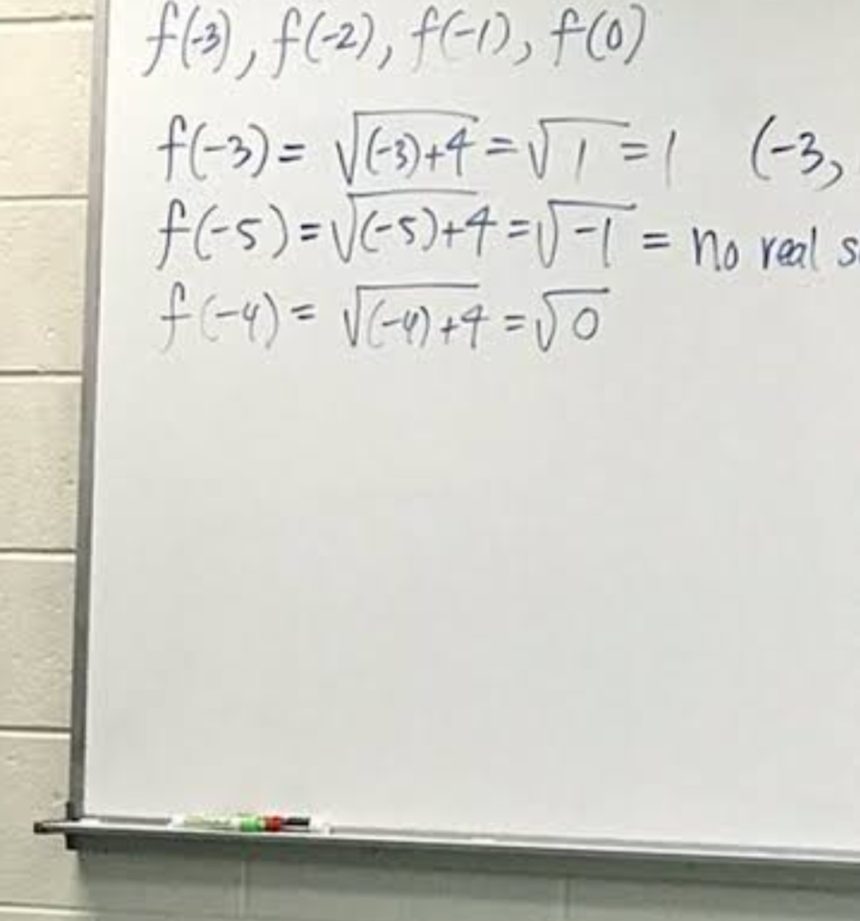 f(-3), f(-2), f(-1), f(0)
f(-3) = √(-3)+4 = √1 = 1 (-3,
f(-5) = √(-5)+4 = √-1 = no real
f(-4) = √(-4)+4 = √0